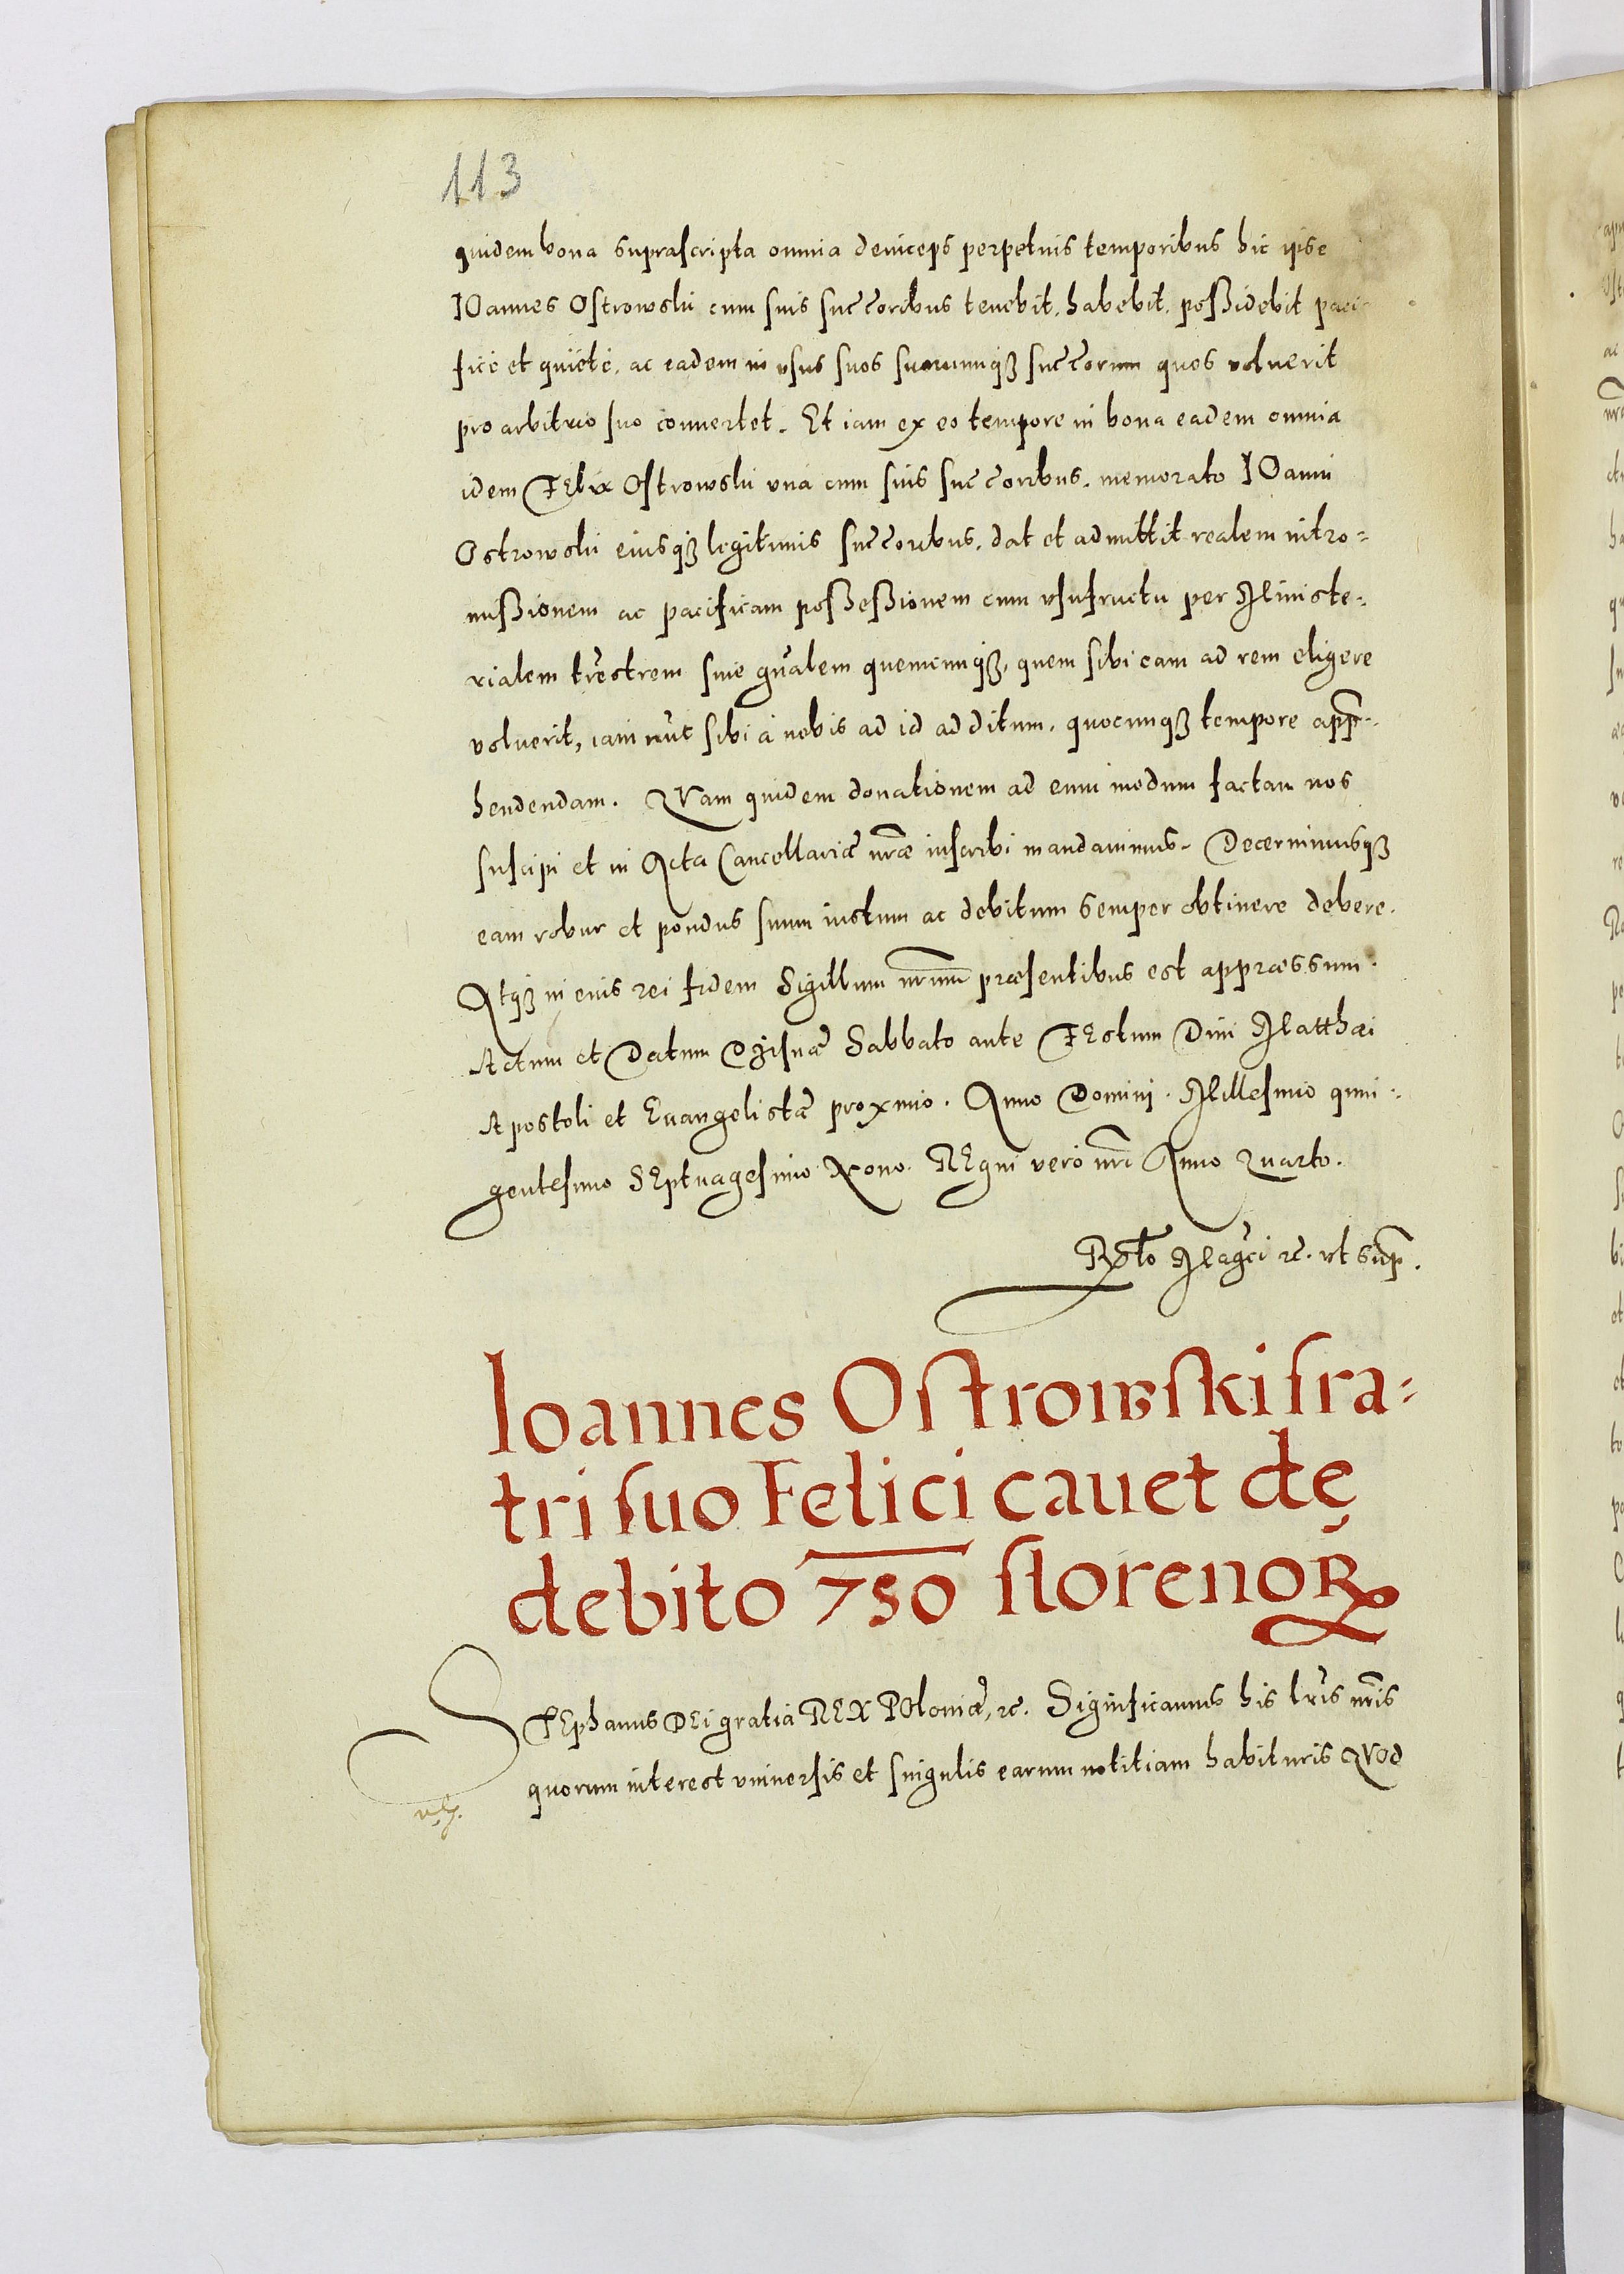 113
quidem bona suprascripta omnia deinceps perpetuis temporibus hic ipse
IOannes Ostrowski cum suis succ̃oribus tenebit, habebit, possidebit paci
ficè et quietè, ac eadem in vsus suos suorumqꝫ succ̃orum quos voluerit
pro arbitrio suo conuertet. Et iam ex eo tempore in bona eadem omnia
idem FElix Ostrowski vnà cum suis succ̃oribus, memorato IOanni
Ostrowski eiusqꝫ legitimis succ̃oribus, dat et admittit realem intro=
missionem ac pacificam possessionem cum vsufructu per Ministe=
rialem trẽstrem siue gñalem quemcunqꝫ, quem sibi eam ad rem eligere
voluerit, iam nũc sibi à nobis ad id additum, quocunqꝫ tempore app̃=
hendendam. QVam quidem donationem ad eum modum factam nos
suscipi et in Acta Cancellariæ nr̃æ inscribi mandauimus. Decernimusqꝫ
eam robur et pondus suum iustum ac debitum semper obtinere debere.
Atqꝫ in eius rei fidem Sigillum nr̃um præsentibus est appræssum.
Actum et Datum Disnæ Sabbato ante FEstum Diui Matthæi
Apostoli et Euangelistæ proximo. Anno Domini. Millesimo quin=
gentesimo SEptuagesimo Nono. REgni verò nr̃i Anno Quarto.
Rel̃to Mag̃ci ꝛc. vt sup̃.
Ioannes Ostrowski fra=
tri suo Felici cauet de
debito 750 florenoꝝ
STEphanus DEi gratia REX POloniæ, ꝛc. Significamus his lr̃is nr̃is
quorum interest vniuersis et singulis earum notitiam habituris QVod